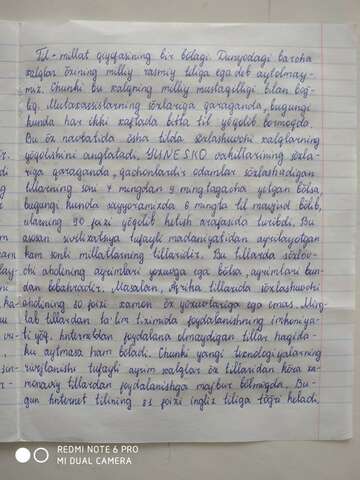 Til - millat qiyofasining bir bòlagi. Dunyodagi barcha
xalqlar òzining milliy rasmiy tiliga ega deb aytolmay-
miz. Chunki bu xalqning milliy mustaqilligi bilan boğ-
liq. Mutaxassislarning sòzlariga qaraganda, bugungi
kunda har ikki xaftada bitta til yòqolib bormoqda.
Bu òz navbatida òsha tilda sòzlashuvchi xalqlarning
yòqolishini anglatadi. YUNESKO vakillarining sòzla-
riga qaraganda, qachonlardir odamlar sòzlashadigan
tillarning soni 7 mingdan 9 mingtagacha yetgan bòlsa,
bugungi kunda sayyoramizda 6 mingta til mavjud bòlib,
ularning 90 foizi yòqolib ketish arafasida turibdi. Bu
asosan sivilizatsiya tufayli madaniyatidan ayrilayotgan
kam sonli millatlarning tillaridir. Bu tillarda sòzlov-
chi aholining ayrimlari yozuvga ega bòlsa, ayrimlari bun-
dan bebahradir. Masalan, Afrika tillarida sòzlashuvchi
aholining 80 foizi xamon òz yozuvlariga ega emas. Ming-
lab tillardan ta'lim tizimida foydalanishning imkoniya-
ti yòq. Internetdan foydalana olmaydigan tillar haqida-
ku aytmasa ham bòladi. Chunki yangi texnologiyalarning
rivojlanishi tufayli ayrim xalqlar òz tillaridan kòra za-
monaviy tillardan foydalanishga majbur bòlmoqda. Bu-
gun internet tilining 81 foizi ingliz tiliga tòğri keladi.
REDMI NOTE 6 PRO
MI DUAL CAMERA